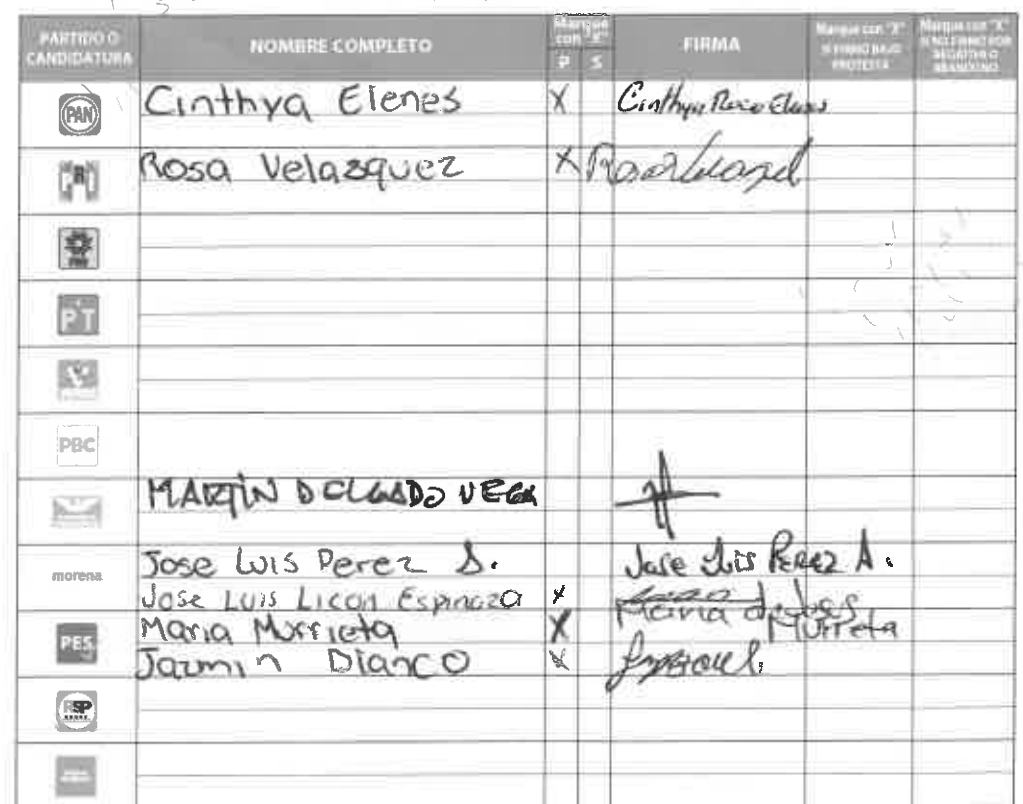 PARTIDO O CANDIDATURA NOMBRE COMPLETO Marque con "X" P S FIRMA Marque con "X" SI FIRMÓ BAJO PROTESTA Marque con "X" SI NO FIRMÓ POR NEGATIVA O ABANDONO
PAN Cinthya Elenes X Cinthya Elenes
Rosa Velazquez X
PT
PBC
MARTIN DELGADO VEGA
morena Jose Luis Perez S. Jose Luis Perez A.
Jose Luis Licon Espinoza X
PES Maria Murrieta X Maria de Murrieta
Jazmin Dianco X
RSP